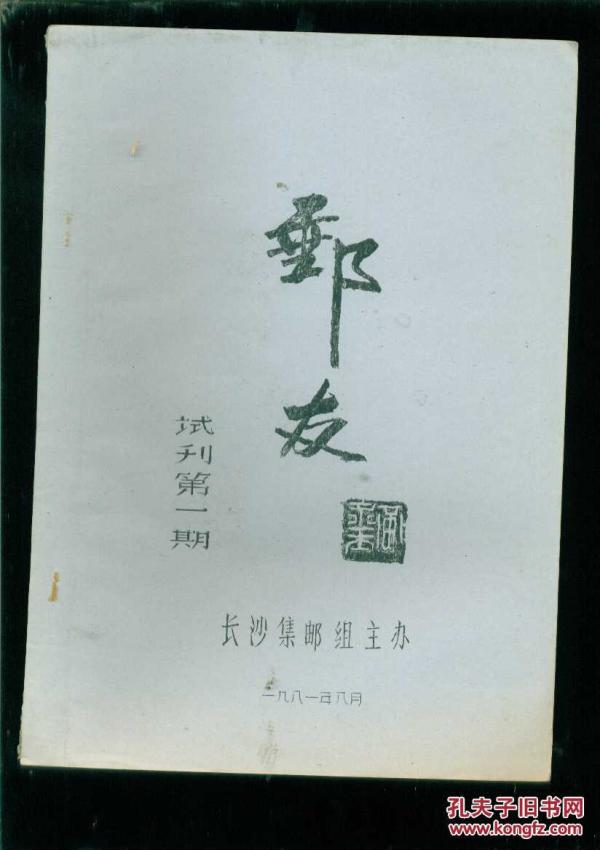 郵友
试刊第一期
长沙集邮组主办
一九八一年八月
孔夫子旧书网
www.kongfz.com